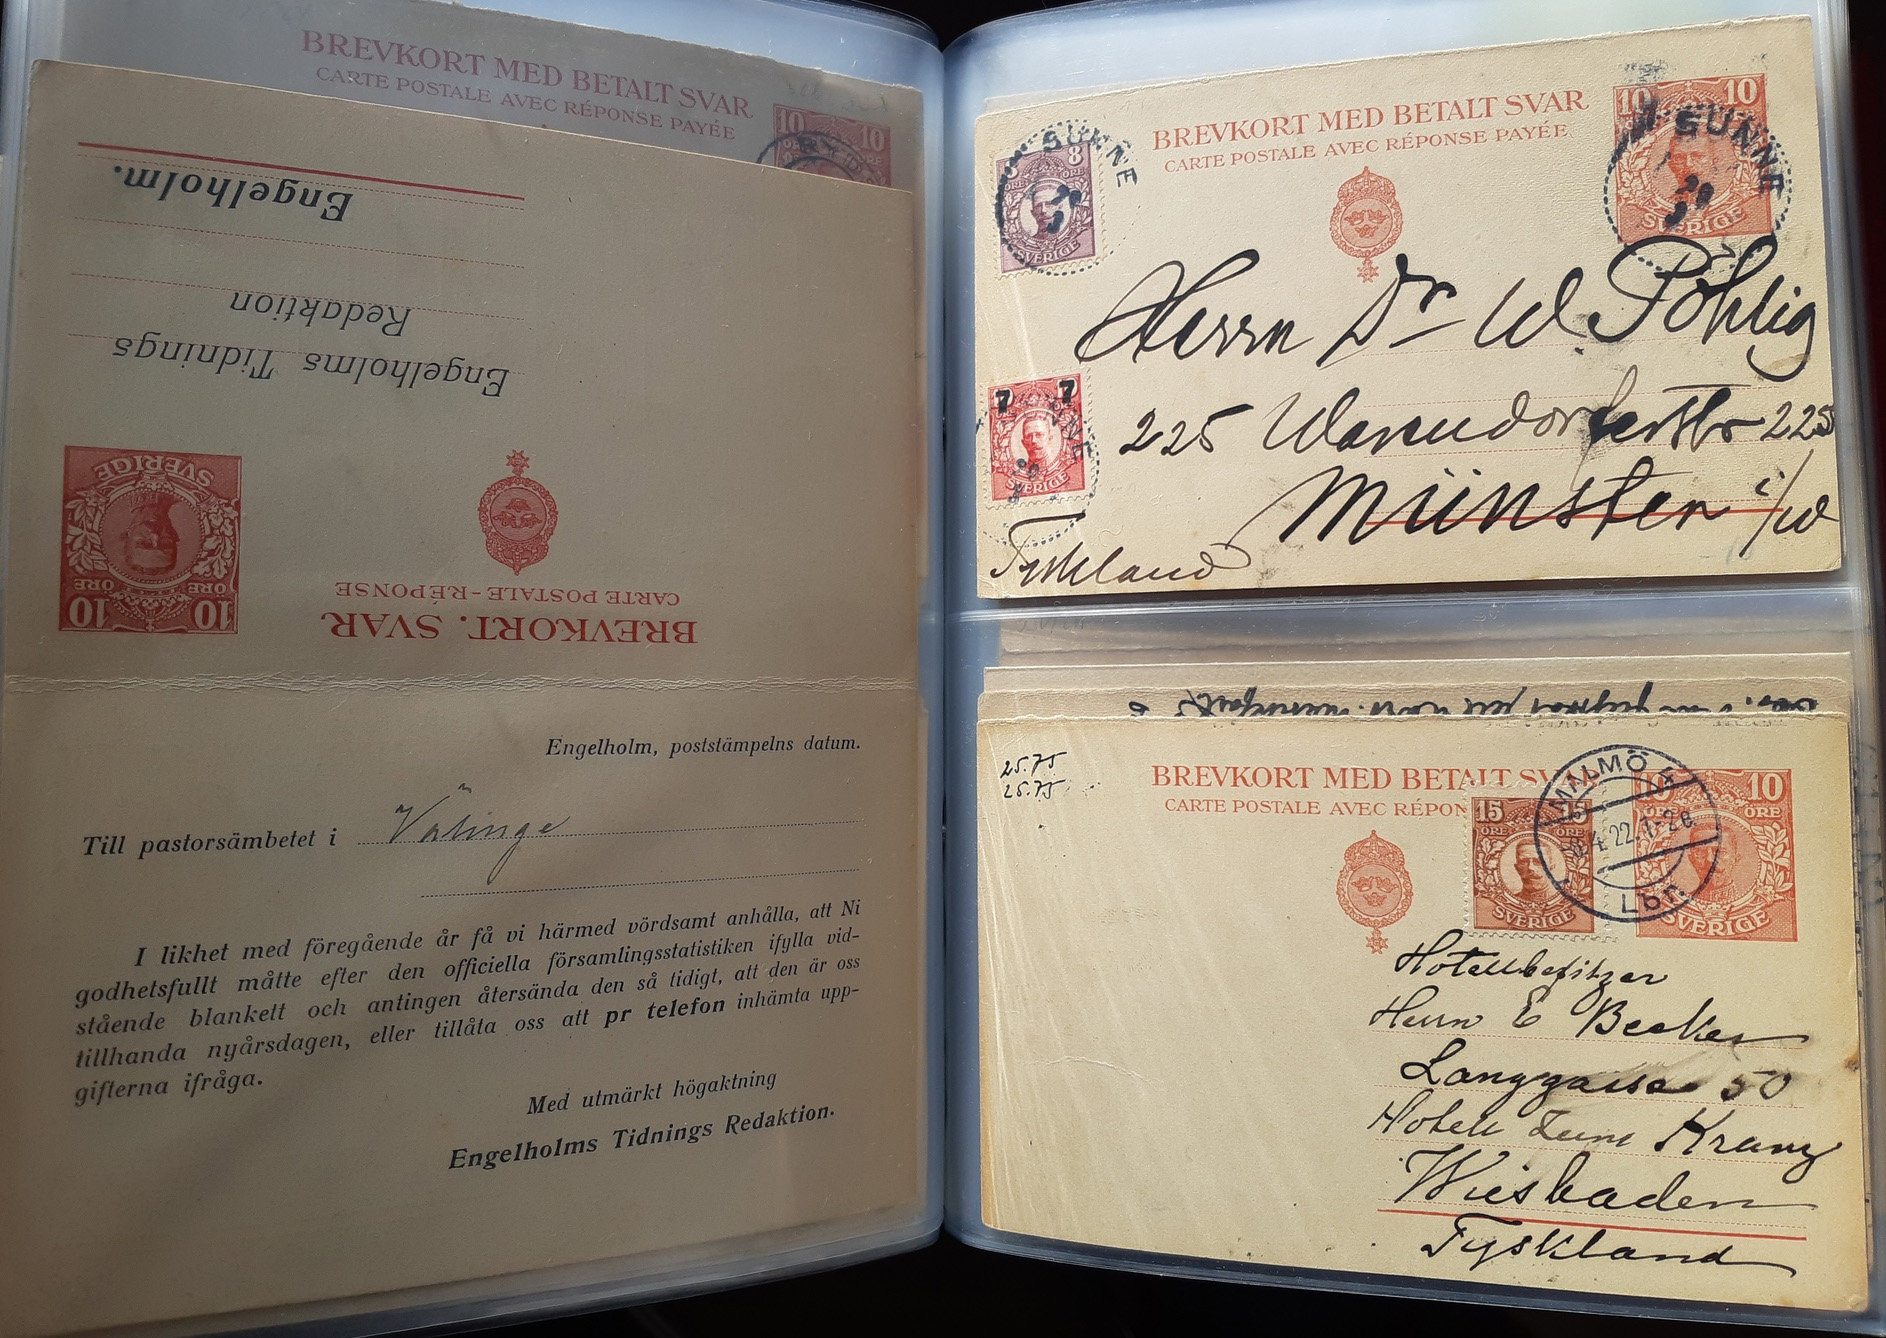 BREVKORT MED BETALT SVAR
CARTE POSTALE AVEC RÉPONSE PAYÉE
10 10
Engelholm.
Redaktion
Engelholms Tidnings
SVERIGE
ÖRE ÖRE
10 10
CARTE POSTALE-RÉPONSE
BREVKORT. SVAR
Engelholm, poststämpelns datum.
Till pastorsämbetet i Välinge
I likhet med föregående år få vi härmed vördsamt anhålla, att Ni
godhetsfullt måtte efter den officiella församlingsstatistiken ifylla vid-
stående blankett och antingen återsända den så tidigt, att den är oss
tillhanda nyårsdagen, eller tillåta oss att pr telefon inhämta upp-
gifterna ifråga.
Med utmärkt högaktning
Engelholms Tidnings Redaktion.
BREVKORT MED BETALT SVAR
CARTE POSTALE AVEC RÉPONSE PAYÉE
10 10
SUNNE
SVERIGE
SUNNE
8
SVERIGE
Herrn Dr W Pöhlig
7 7
SVERIGE
225 Warendorferstr 225
Münster i/W
Tyskland
25.75
25.75
BREVKORT MED BETALT SVAR
CARTE POSTALE AVEC RÉPON
15 15
ÖRE ÖRE
SVERIGE
MALMÖ 4
4 22 1-2e
LBR.
10 10
SVERIGE
Hotellbesitzer
Herrn E Becker
Langgasse 50
Hotell Zum Kranz
Wiesbaden
Tyskland